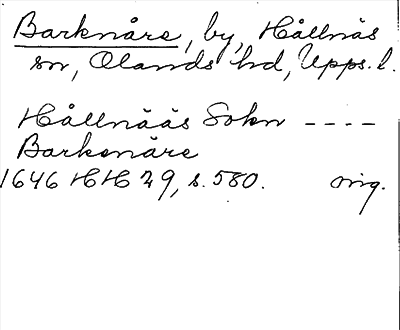 Barknåre, by, Hållnäs
sn, Olands hd, Upps. l.
Hållnääs Sokn ----
Barkenåre
1646 HH 29, s. 580. orig.